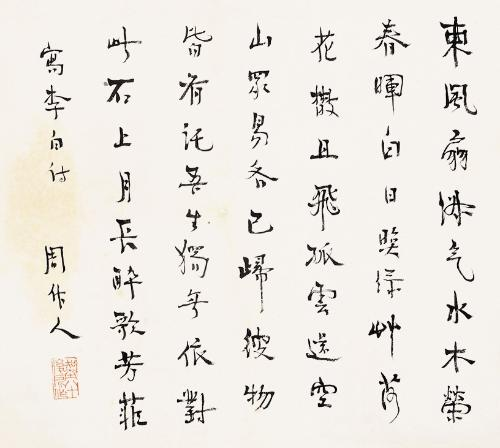 東風扇淑气水木榮
春暉白日暎綠艸落
花散且飛孤雲還空
山眾鳥各已歸彼物
皆有託吾生獨無依對
此石上月長醉歌芳菲
寫李白詩 周作人